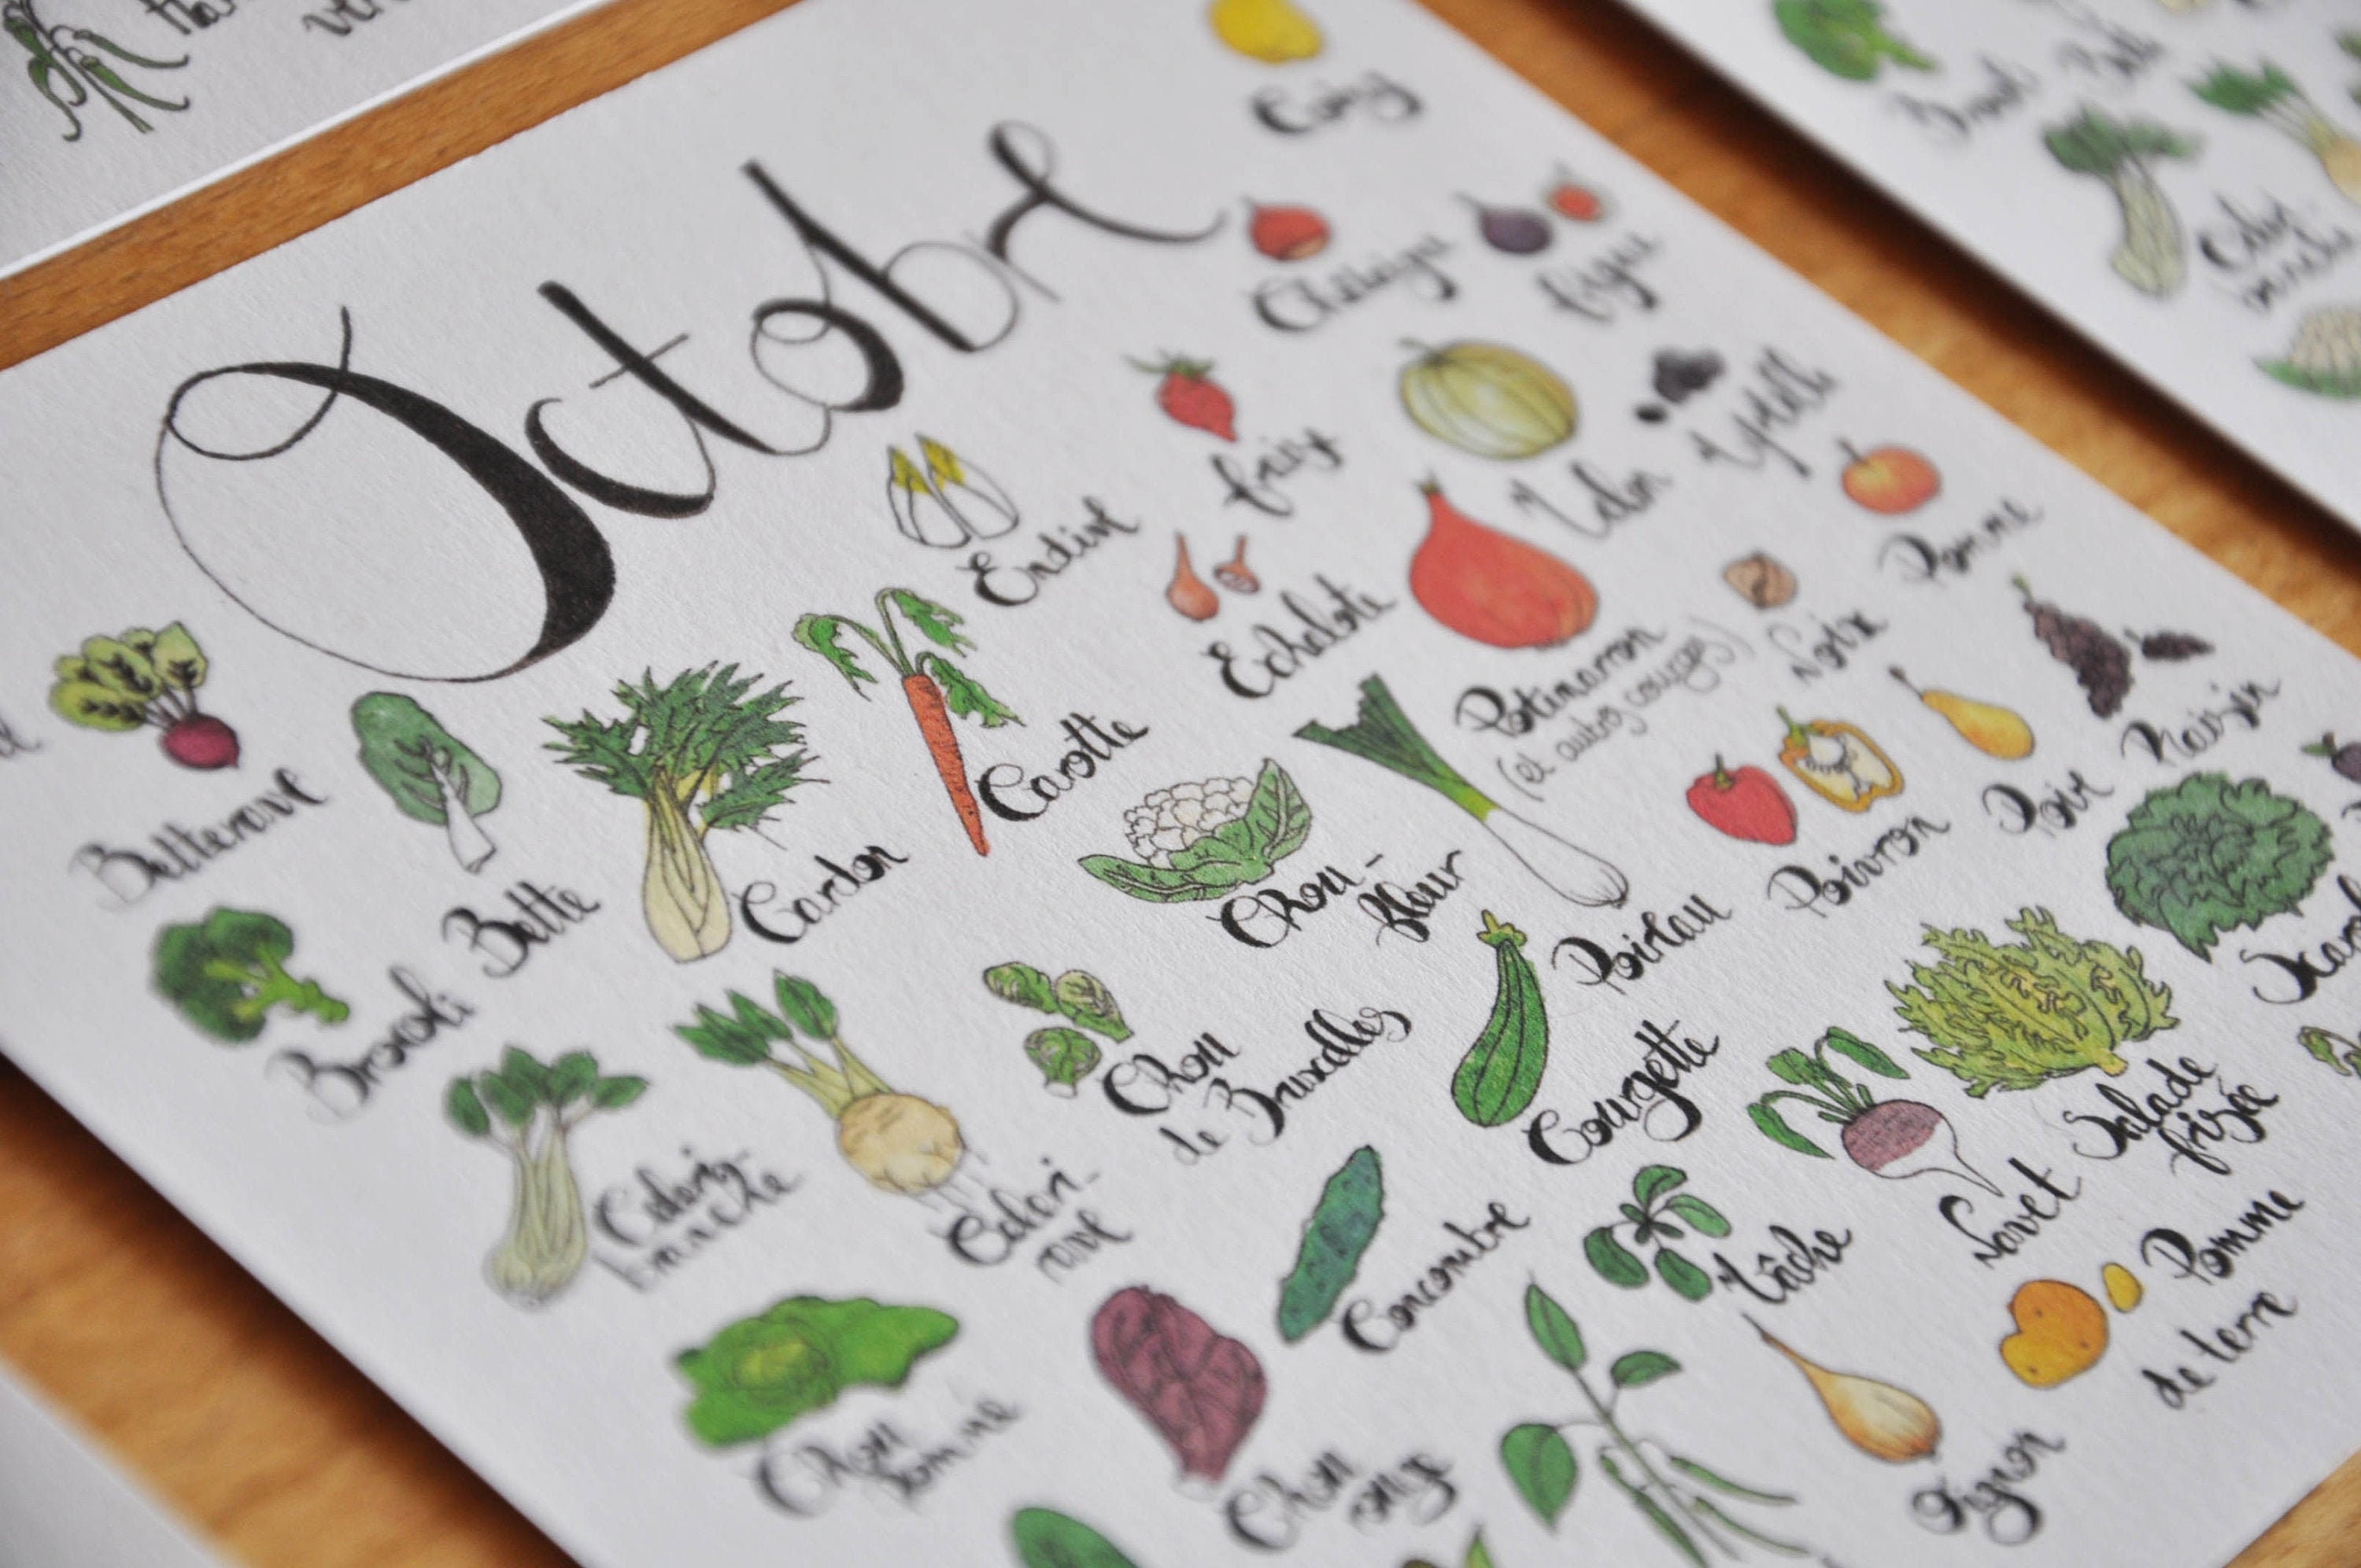 Octobre
Coing
Châtaigne
Figue
Fraise
Melon
Myrtille
Endive
Echalote
Potimarron
(et autres courges)
Noix
Pomme
Betterave
Bette
Cardon
Carotte
Chou-
fleur
Poireau
Poivron
Poire
Raisin
Brocoli
Céleri-
branche
Céleri-
rave
Chou
de Bruxelles
Courgette
Salade
frisée
Chou
pommé
Chou
rouge
Concombre
Mâche
Navet
Oignon
Pomme
de terre